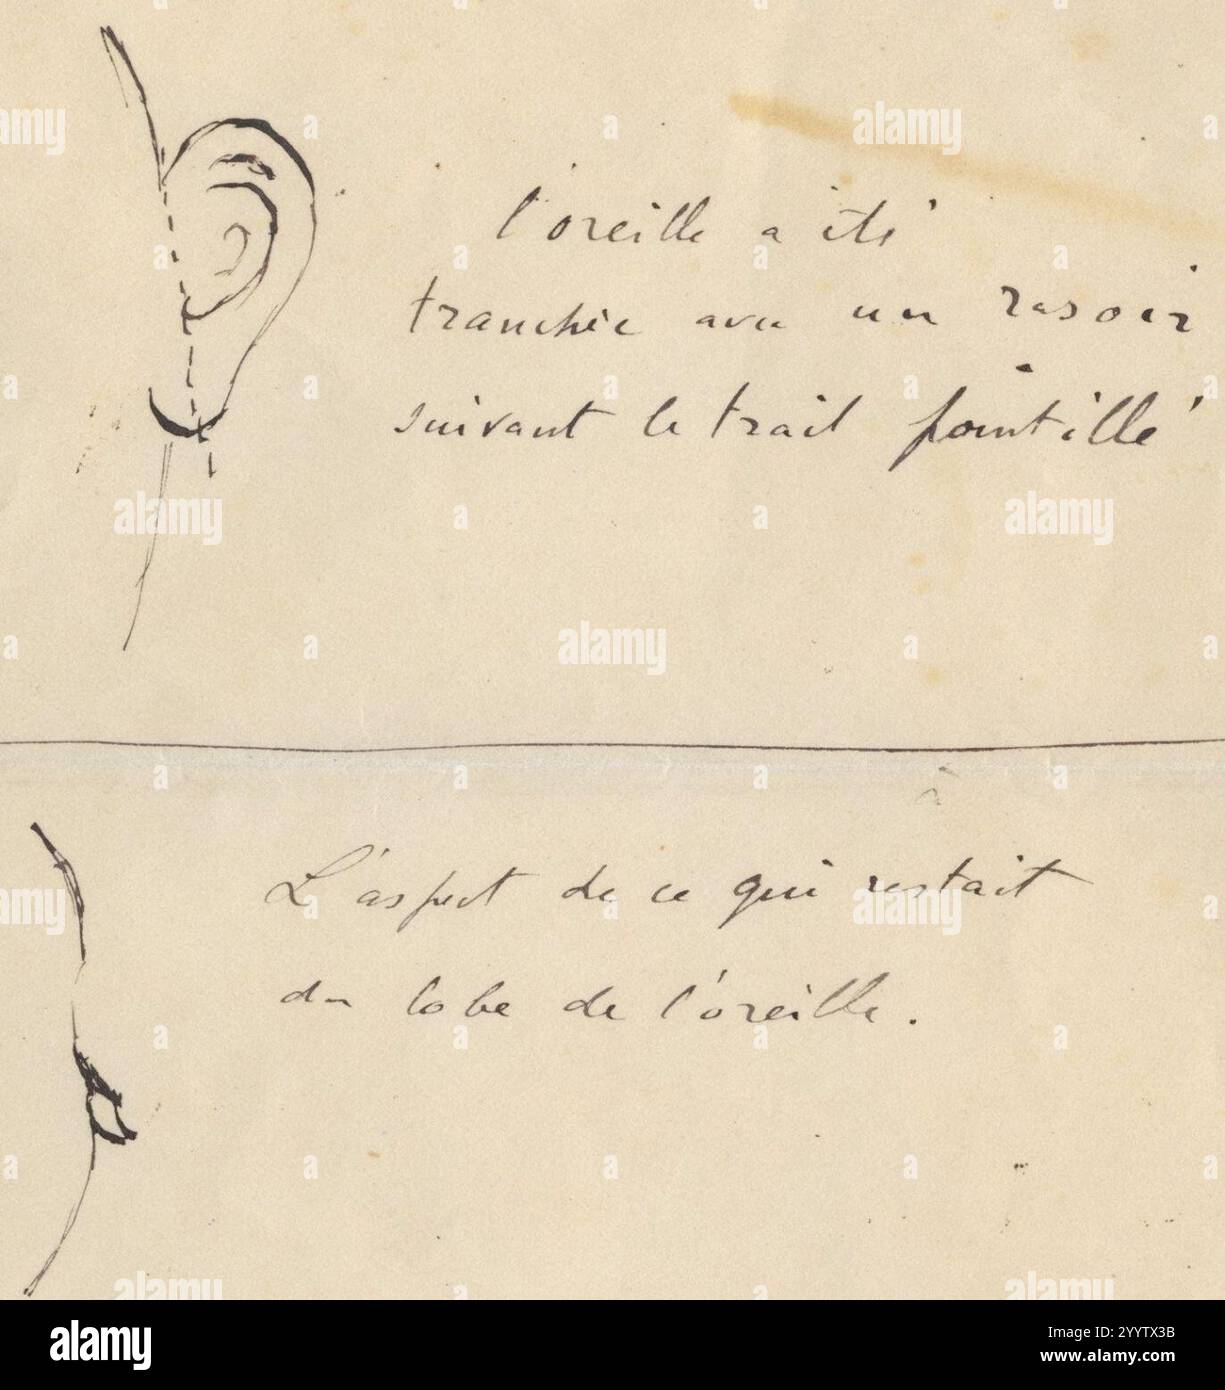 l'oreille a été
tranchée avec un rasoir
suivant le trait pointillé
L'aspect de ce qui restait
du lobe de l'oreille.
alamy
Image ID: 2YYTX3B
www.alamy.com